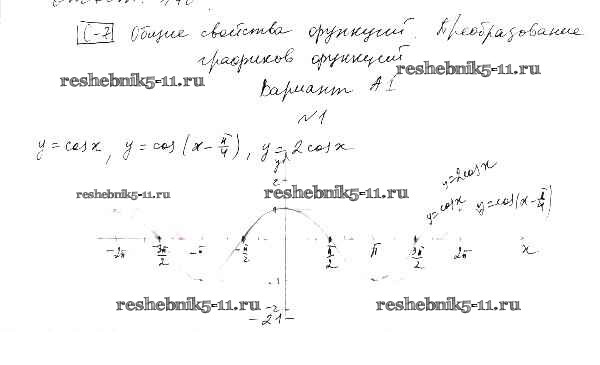 С-7 Общие свойства функций. Преобразование
графиков функций
reshebnik5-11.ru
reshebnik5-11.ru
Вариант А1
№1
y = cosx, y = cos(x - π/4), y = 2cosx
y
2
y=2cosx
reshebnik5-11.ru
reshebnik5-11.ru
1
y=cosx y=cos(x-π/4)
-2π -3π/2 -π -π/2 π/2 π 3π/2 2π x
-1
reshebnik5-11.ru
reshebnik5-11.ru
-2
-21-